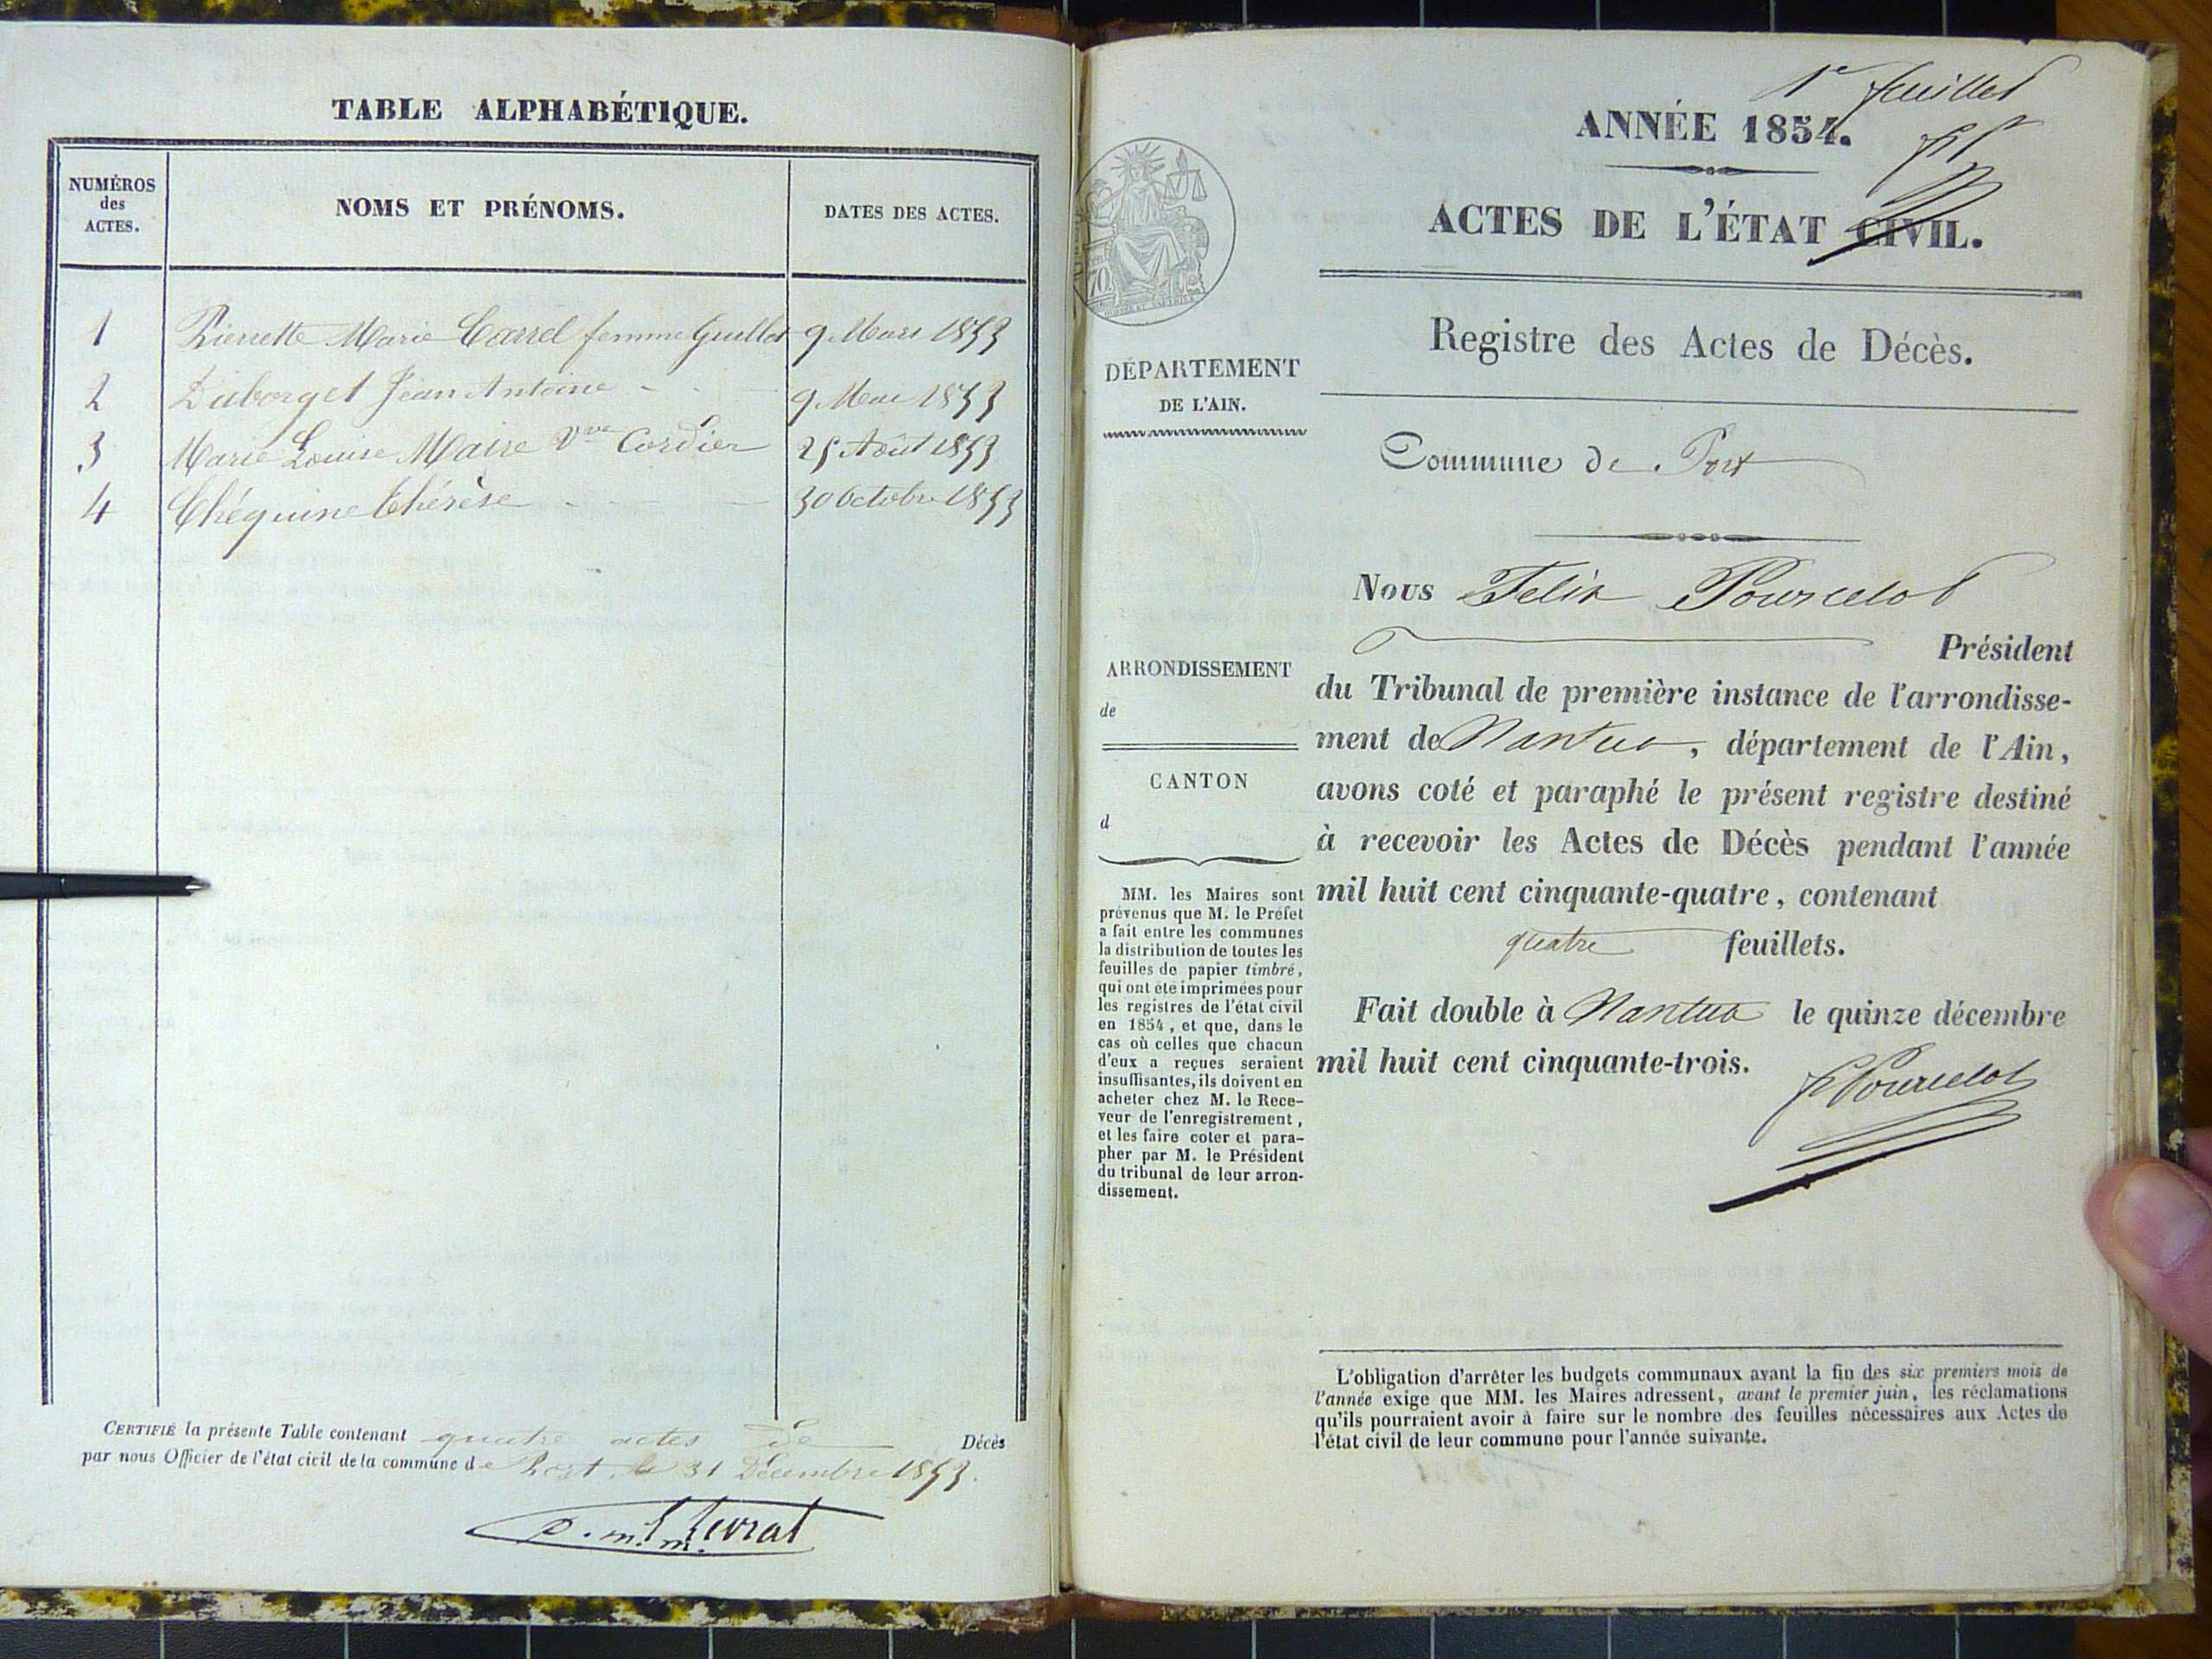 TABLE ALPHABÉTIQUE.
NUMÉROS des ACTES.
NOMS ET PRÉNOMS.
DATES DES ACTES.
1 Pierrette Marie Carrel femme Guillot 9 Mars 1853
2 Duborget Jean Antoine 9 Mai 1853
3 Marie Louise Maire Vve Cordier 25 Août 1853
4 Chéquine Thérèse 30 Octobre 1853
CERTIFIÉ la présente Table contenant quatre actes de Décès
par nous Officier de l'état civil de la commune de Port, le 31 Décembre 1853.
1er feuillet
ANNÉE 1854.
ACTES DE L'ÉTAT CIVIL.
Registre des Actes de Décès.
DÉPARTEMENT
DE L'AIN.
Commune de Port
Nous Felix Pourcelot
Président
du Tribunal de première instance de l'arrondisse-
ment de Nantua, département de l'Ain,
avons coté et paraphé le présent registre destiné
à recevoir les Actes de Décès pendant l'année
mil huit cent cinquante-quatre, contenant
quatre feuillets.
Fait double à Nantua le quinze décembre
mil huit cent cinquante-trois.
F Pourcelot
ARRONDISSEMENT
de
CANTON
d
MM. les Maires sont
prévenus que M. le Préfet
a fait entre les communes
la distribution de toutes les
feuilles de papier timbré,
qui ont été imprimées pour
les registres de l'état civil
en 1854, et que, dans le
cas où celles que chacun
d'eux a reçues seraient
insuffisantes, ils doivent en
acheter chez M. le Rece-
veur de l'enregistrement,
et les faire coter et para-
pher par M. le Président
du tribunal de leur arron-
dissement.
L'obligation d'arrêter les budgets communaux avant la fin des six premiers mois de
l'année exige que MM. les Maires adressent, avant le premier juin, les réclamations
qu'ils pourraient avoir à faire sur le nombre des feuilles nécessaires aux Actes de
l'état civil de leur commune pour l'année suivante.